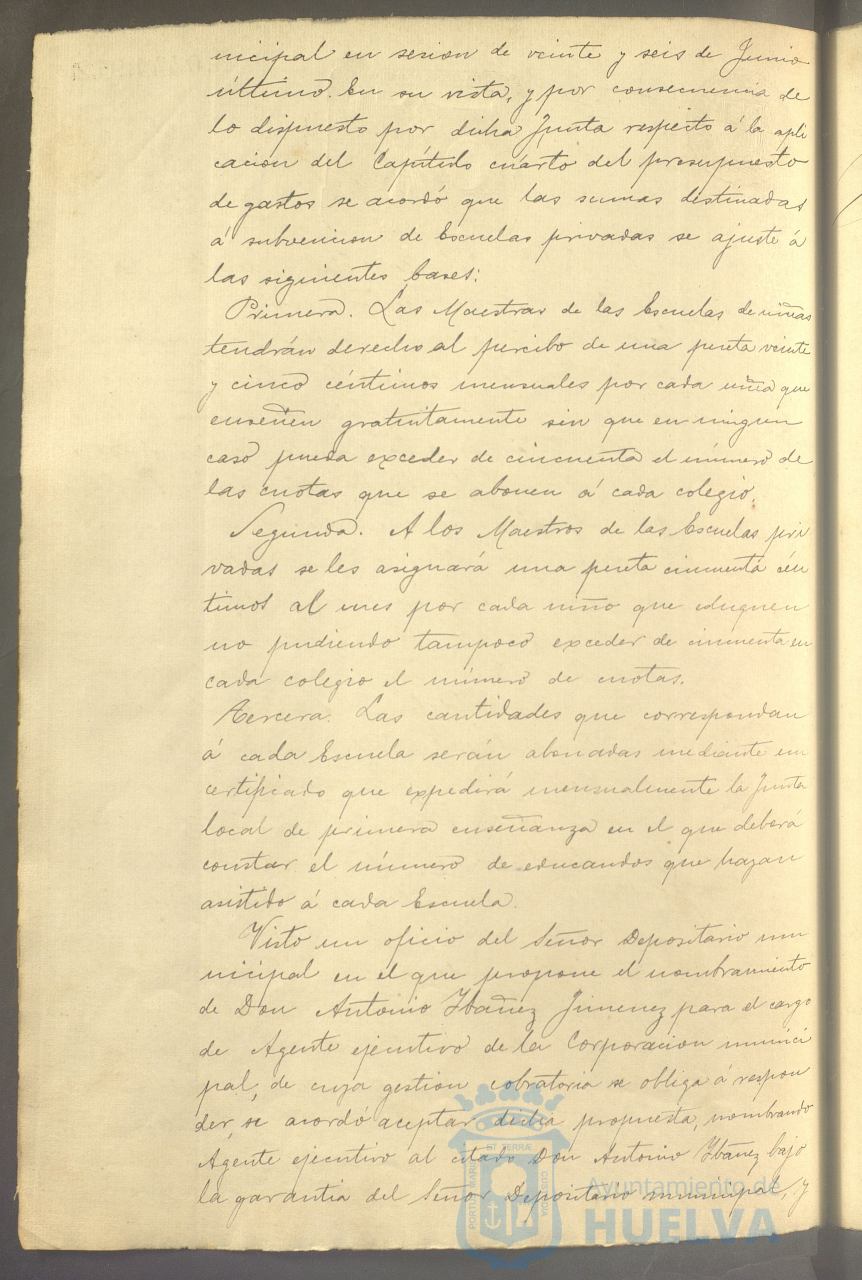 nicipal en sesion de veinte y seis de Junio
último. En su vista, y por consecuencia de
lo dispuesto por dicha Junta respecto á la apli
cacion del Capítulo cuarto del presupuesto
de gastos se acordó que las sumas destinadas
á subvencion de Escuelas privadas se ajuste á
las siguientes bases:
Primera. Las Maestras de las Escuelas de niñas
tendrán derecho al percibo de una peseta veinte
y cinco céntimos mensuales por cada niña que
enseñen gratuitamente sin que en ningun
caso pueda exceder de cincuenta el número de
las cuotas que se abonen á cada colegio.
Segunda. A los Maestros de las Escuelas pri
vadas se les asignará una peseta cincuenta cén
timos al mes por cada niño que eduquen
no pudiendo tampoco exceder de cincuenta en
cada colegio el número de cuotas.
Tercera. Las cantidades que correspondan
á cada Escuela serán abonadas mediante un
certificado que expedirá mensualmente la Junta
local de primera enseñanza en el que deberá
constar el número de educandos que hayan
asistido á cada Escuela.
Visto un oficio del Señor Depositario mu
nicipal en el que propone el nombramiento
de Don Antonio Ybañez Jimenez para el cargo
de Agente ejecutivo de la Corporacion munici
pal, de cuya gestion cobratoria se obliga á respon
der, se acordó aceptar dicha propuesta, nombrando
Agente ejecutivo al citado Don Antonio Ybañez bajo
la garantia del Señor Depositario municipal, y
PORTUS MARIS ET TERRÆ CUSTODIA
Ayuntamiento de
HUELVA